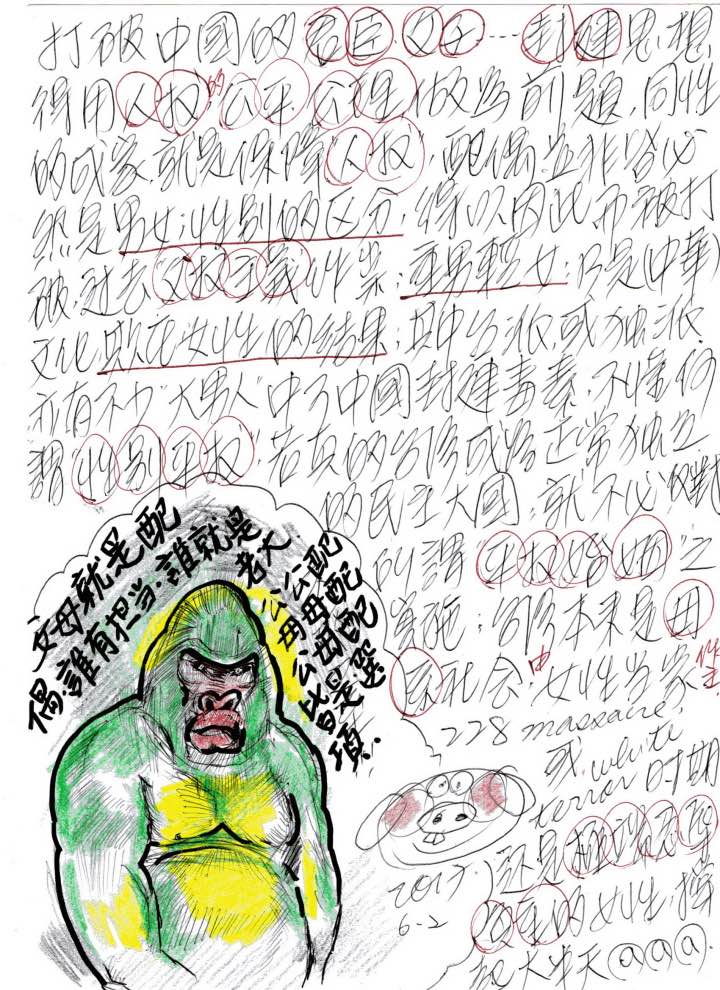 打破中國的君臣父子……封建思想
得用人权的公平公理做為前題,同性
的成家,就是保障"人权",配偶並非必
然是男女;性別的区分;得以因此而被打
破;过去父权主義作祟;重男輕女;乃是中華
文化欺压女性的結果;其中台派,或独派
亦有不少"大男人"中了中國封建毒素,不懂何
謂性別平权,若真的台湾成為正常独立
的民主大國,就不必
所謂平权婚姻之
實施;台湾本来是母
系社会,由女性当家作主
228 massacre,
或 white
terror 时期
还是
的女性,撐
起大半天@@@.
父母就是配
偶.誰有担当.誰就是
老大
公配
公母配
母母配
公公
皆是選
項.
2017.
6-2